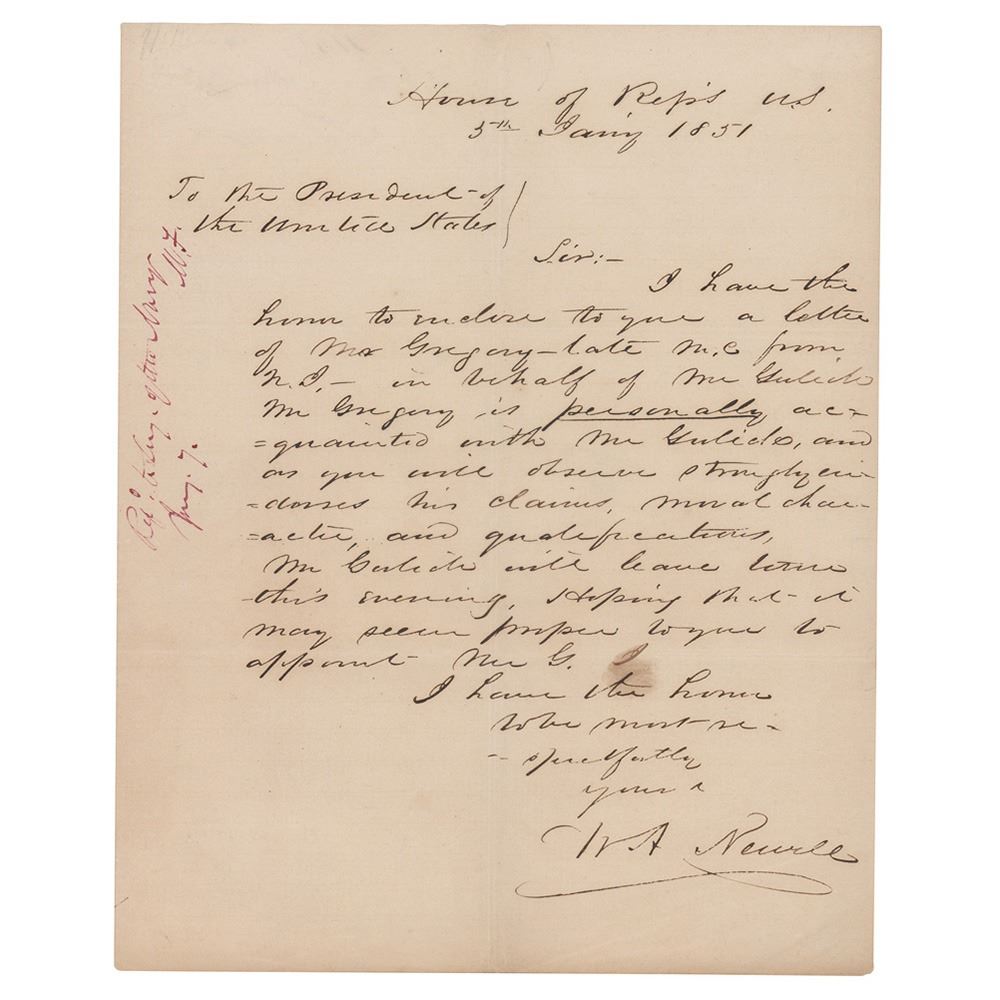 House of Rep's U.S.
5th Jan'y 1851
To the President of
the United States
Sir:-
I have the
honor to enclose to you a letter
of Mr Gregory - late M.C from
N.J. - in behalf of Mr Gulick
Mr Gregory is personally ac-
=quainted with Mr Gulick, and
as you will observe strongly en-
-dorses his claims, moral char-
=acter, and qualifications,
Mr Gulick will leave here
this evening, Hoping that it
may seem proper to you to
appoint Mr G. I
I have the honor
to be most re-
-spectfully
yours
W A Newell
Ref'd to Secy. of the Navy
M.F.
Jany. 7.